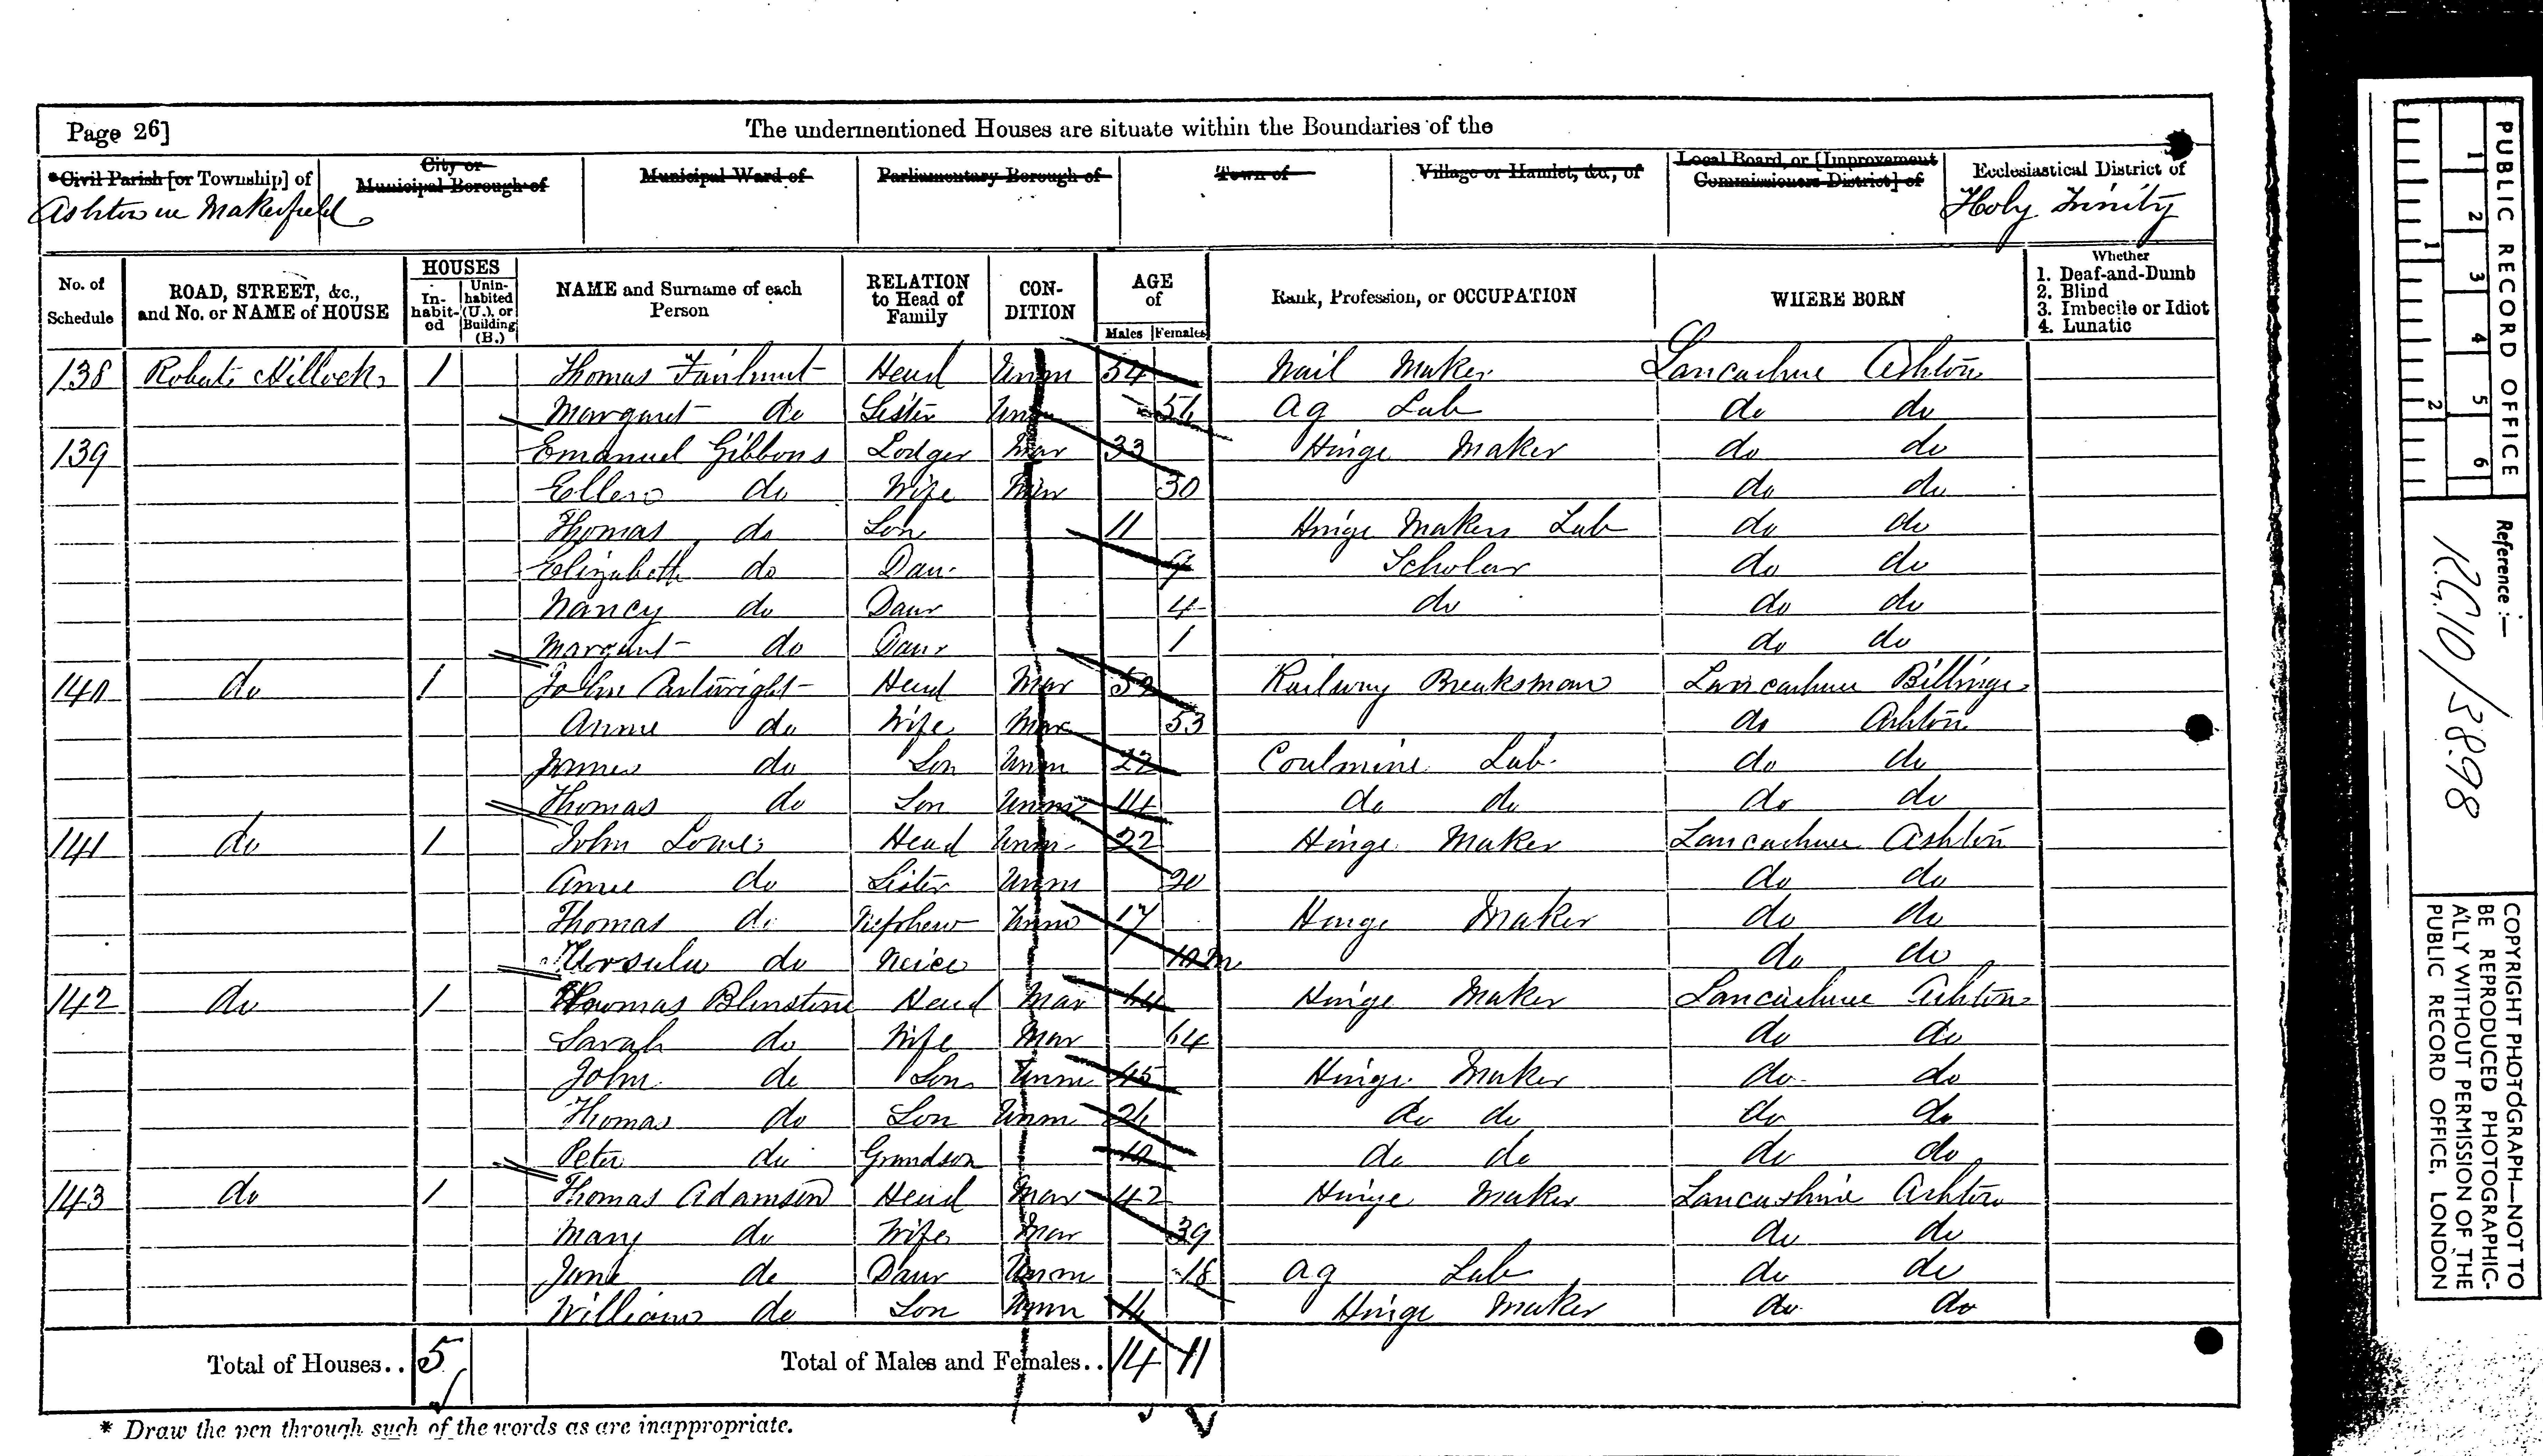 Page 26]
The undermentioned Houses are situate within the Boundaries of the
*Civil Parish [or Township] of
City or Municipal Borough of
Municipal Ward of
Parliamentary Borough of
Town of
Village or Hamlet, &c., of
Local Board, or [Improvement Commissioners District] of
Ecclesiastical District of
Ashton in Makerfield
Holy Trinity
No. of Schedule
ROAD, STREET, &c., and No. or NAME of HOUSE
HOUSES
In-habit-ed
Unin-habited (U.), or Building (B.)
NAME and Surname of each Person
RELATION to Head of Family
CON-DITION
AGE of
Males Females
Rank, Profession, or OCCUPATION
WHERE BORN
Whether
1. Deaf-and-Dumb
2. Blind
3. Imbecile or Idiot
4. Lunatic
138 Roberts Hillock 1 Thomas Fairhurst Head Unm 54 Nail Maker Lancashire Ashton
Margaret do Sister Unm Ag Lab do do
139 Emanuel Gibbons Lodger Mar 33 Hinge Maker do do
Ellen do Wife Mar 30 do do
Thomas do Son 11 Hinge Makers Lab do do
Elizabeth do Dau 9 Scholar do do
Nancy do Daur 4 do do do
Margaret do Daur 1 do do
140 do 1 John Cartwright Head Mar Railway Breaksman Lancashire Billinge
Annie do Wife Mar 53 do Ashton
James do Son Unm 22 Coalmine Lab do do
Thomas do Son Unm 14 do do do do
141 do 1 John Lowe Head Unm 22 Hinge Maker Lancashire Ashton
Anne do Sister Unm 20 do do
Thomas do Nephew Unm 17 Hinge Maker do do
Ursula do Neice do do
142 do 1 Thomas Blinstone Head Mar Hinge Maker Lancashire Ashton
Sarah do Wife Mar 64 do do
John do Son Unm 45 Hinge Maker do do
Thomas do Son Unm do do do do
Peter do Grandson do do do do
143 do 1 Thomas Adamson Head Mar 42 Hinge Maker Lancashire Ashton
Mary do Wife Mar 39 do do
Jane do Daur Unm 18 Ag Lab do do
William do Son Unm Hinge Maker do do
Total of Houses.. 5
Total of Males and Females.. 14 11
* Draw the pen through such of the words as are inappropriate.
PUBLIC RECORD OFFICE
1 2 3 4 5 6
1 2
Reference :—
R.G.10/3898
COPYRIGHT PHOTOGRAPH—NOT TO
BE REPRODUCED PHOTOGRAPHIC-
ALLY WITHOUT PERMISSION OF THE
PUBLIC RECORD OFFICE, LONDON